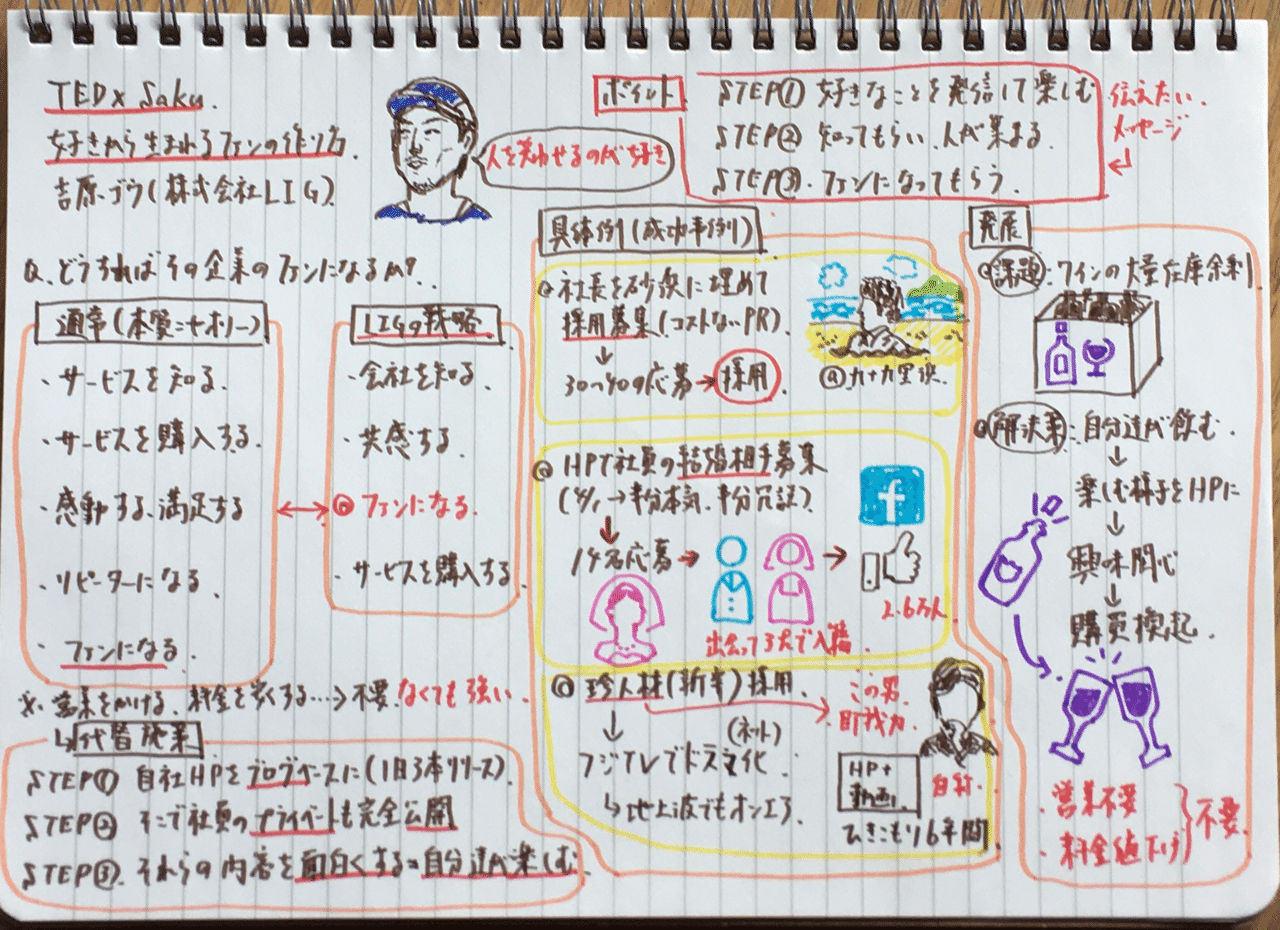 TEDx Saku
好きから生まれるファンの作り方
吉原ゴウ(株式会社LIG)
人を笑わせるのが好き
ポイント
STEP① 好きなことを発信して楽しむ
STEP② 知ってもらい、人が集まる
STEP③ ファンになってもらう
伝えたい
メッセージ
Q. どうすればその企業のファンになるか?
通常(本質=セオリー)
・サービスを知る
・サービスを購入する
・感動する、満足する
・リピーターになる
・ファンになる
LIGの戦略
・会社を知る
・共感する
ファンになる
・サービスを購入する
※営業をかける、料金を安くする…→不要。なくても強い
↳代替施策
STEP① 自社HPをブログベースに(1日3本リリース)
STEP② そこで社員のプライベートも完全公開
STEP③ それらの内容を面白くする=自分達が楽しむ
具体例(成功事例)
社長を砂浜に埋めて
採用募集(コストないPR)
30〜40の応募→採用
@九十九里浜
HPで社員の結婚相手募集
(4/1→半分本気、半分冗談)
14名応募
f
2.6万人
出会って3犬で入籍
珍人種(新卒)採用
この男
即戦力
(ネット)
フジTVでドラマ化
↳地上波でもオンエア
HP+
動画
自称
ひきこもり6年間
発展
課題:ワインの大量在庫余剰
解決策:自分達が飲む
楽しむ様子をHPに
興味関心
購買喚起
・営業不要
・料金値下げ
不要